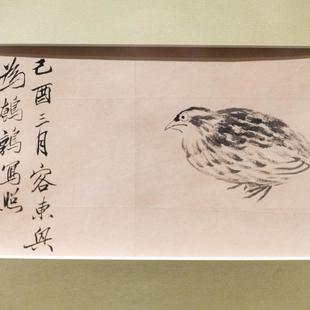 己酉三月客東興
為鵪鶉寫照